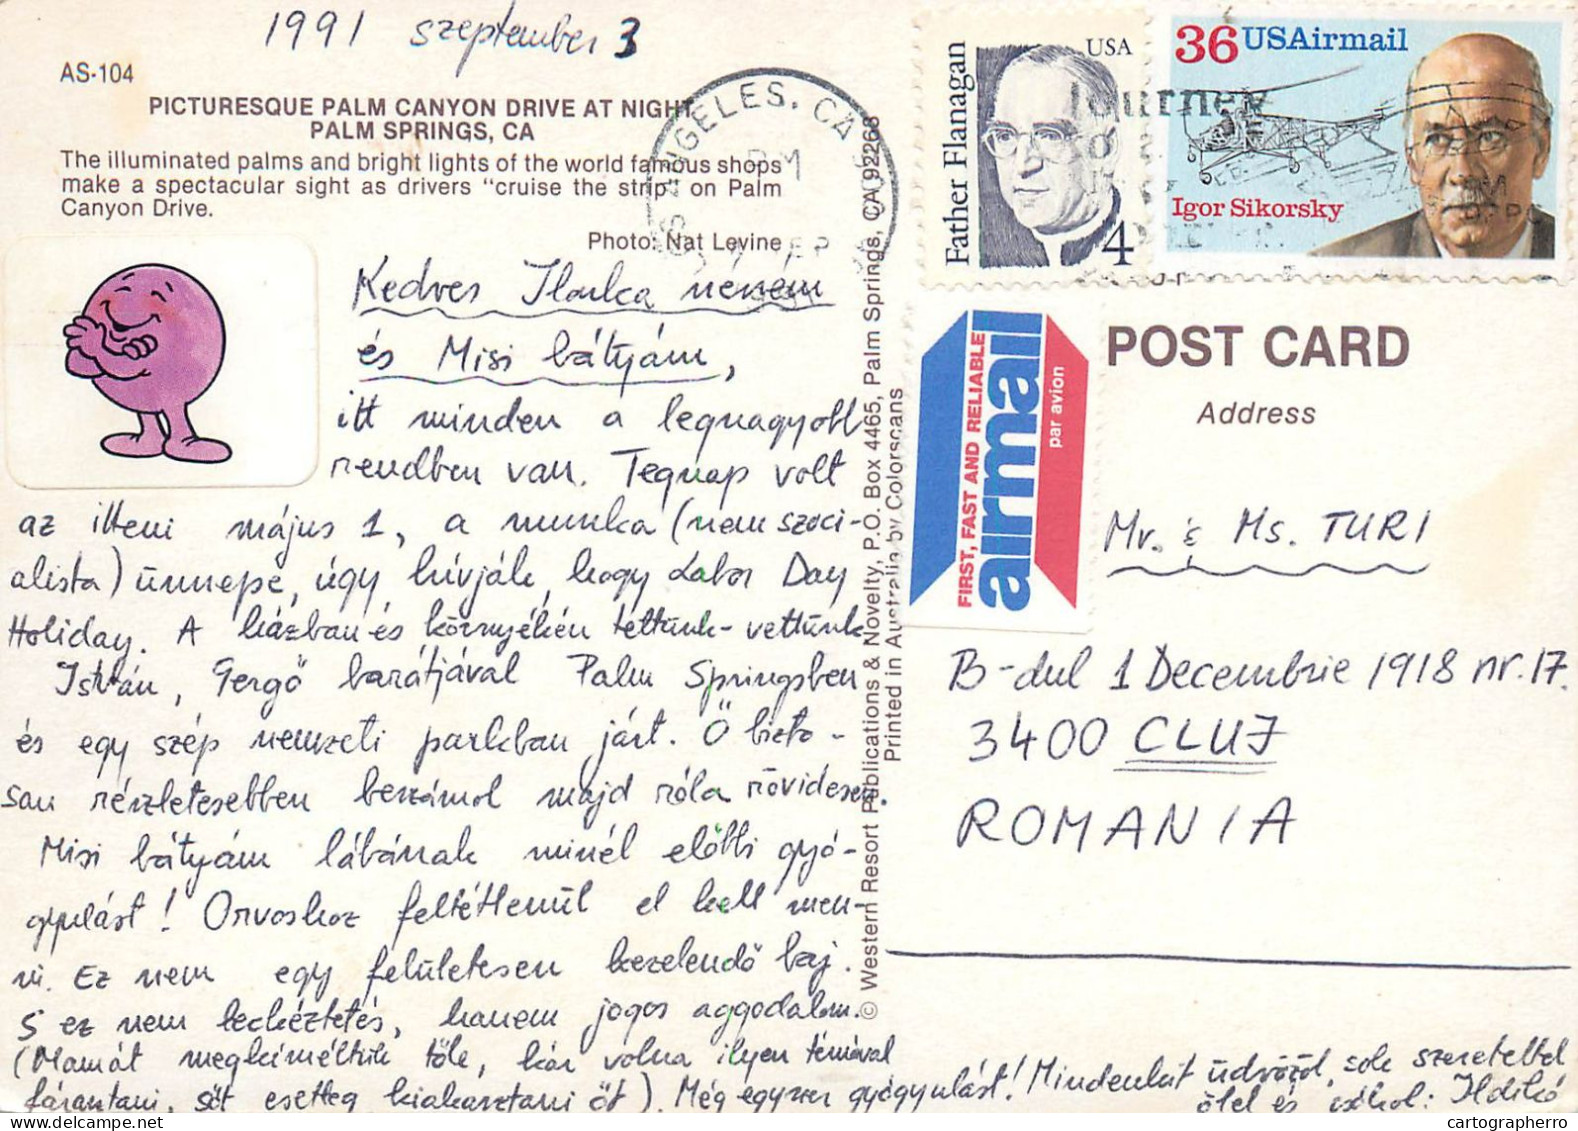 1991 szeptember 3
AS-104
PICTURESQUE PALM CANYON DRIVE AT NIGHT
PALM SPRINGS, CA
The illuminated palms and bright lights of the world famous shops
make a spectacular sight as drivers "cruise the strip" on Palm
Canyon Drive.
Photo: Nat Levine
Kedves Ilonka néném
és Misi bátyám,
itt minden a legnagyobb
rendben van. Tegnap volt
az itteni május 1, a munka (nem szoci-
alista) ünnepe, úgy hívják, hogy Labor Day
Holiday. A házban és környékén tettünk-vettünk
István, Gergő barátjával Palm Springsben
és egy szép nemzeti parkban járt. Ő bizto-
san részletesebben beszámol majd róla rövidesen.
Misi bátyám lábának minél előbbi gyó-
gyulást! Orvoshoz feltétlenül el kell men-
ni. Ez nem egy felületesen kezelendő baj.
S ez nem leckéztetés, hanem jogos aggodalom.
(Mamát megkíméltük tőle, kár volna ilyen témával
fárasztani, sőt esetleg kiakasztani őt). Még egyszer gyógyulást! Mindenkit üdvözöl, sok szeretettel
ölel és csókol: Ildikó
© Western Resort Publications & Novelty, P.O. Box 4465, Palm Springs, CA 92263
Printed in Australia by Colorscans
ANGELES, CA
PM
SEP
Father Flanagan
USA
4
Journey
36 USAirmail
Igor Sikorsky
FIRST, FAST AND RELIABLE
airmail
par avion
POST CARD
Address
Mr. & Ms. TURI
B-dul 1 Decembrie 1918 nr. 17.
3400 CLUJ
ROMANIA
cartographerro